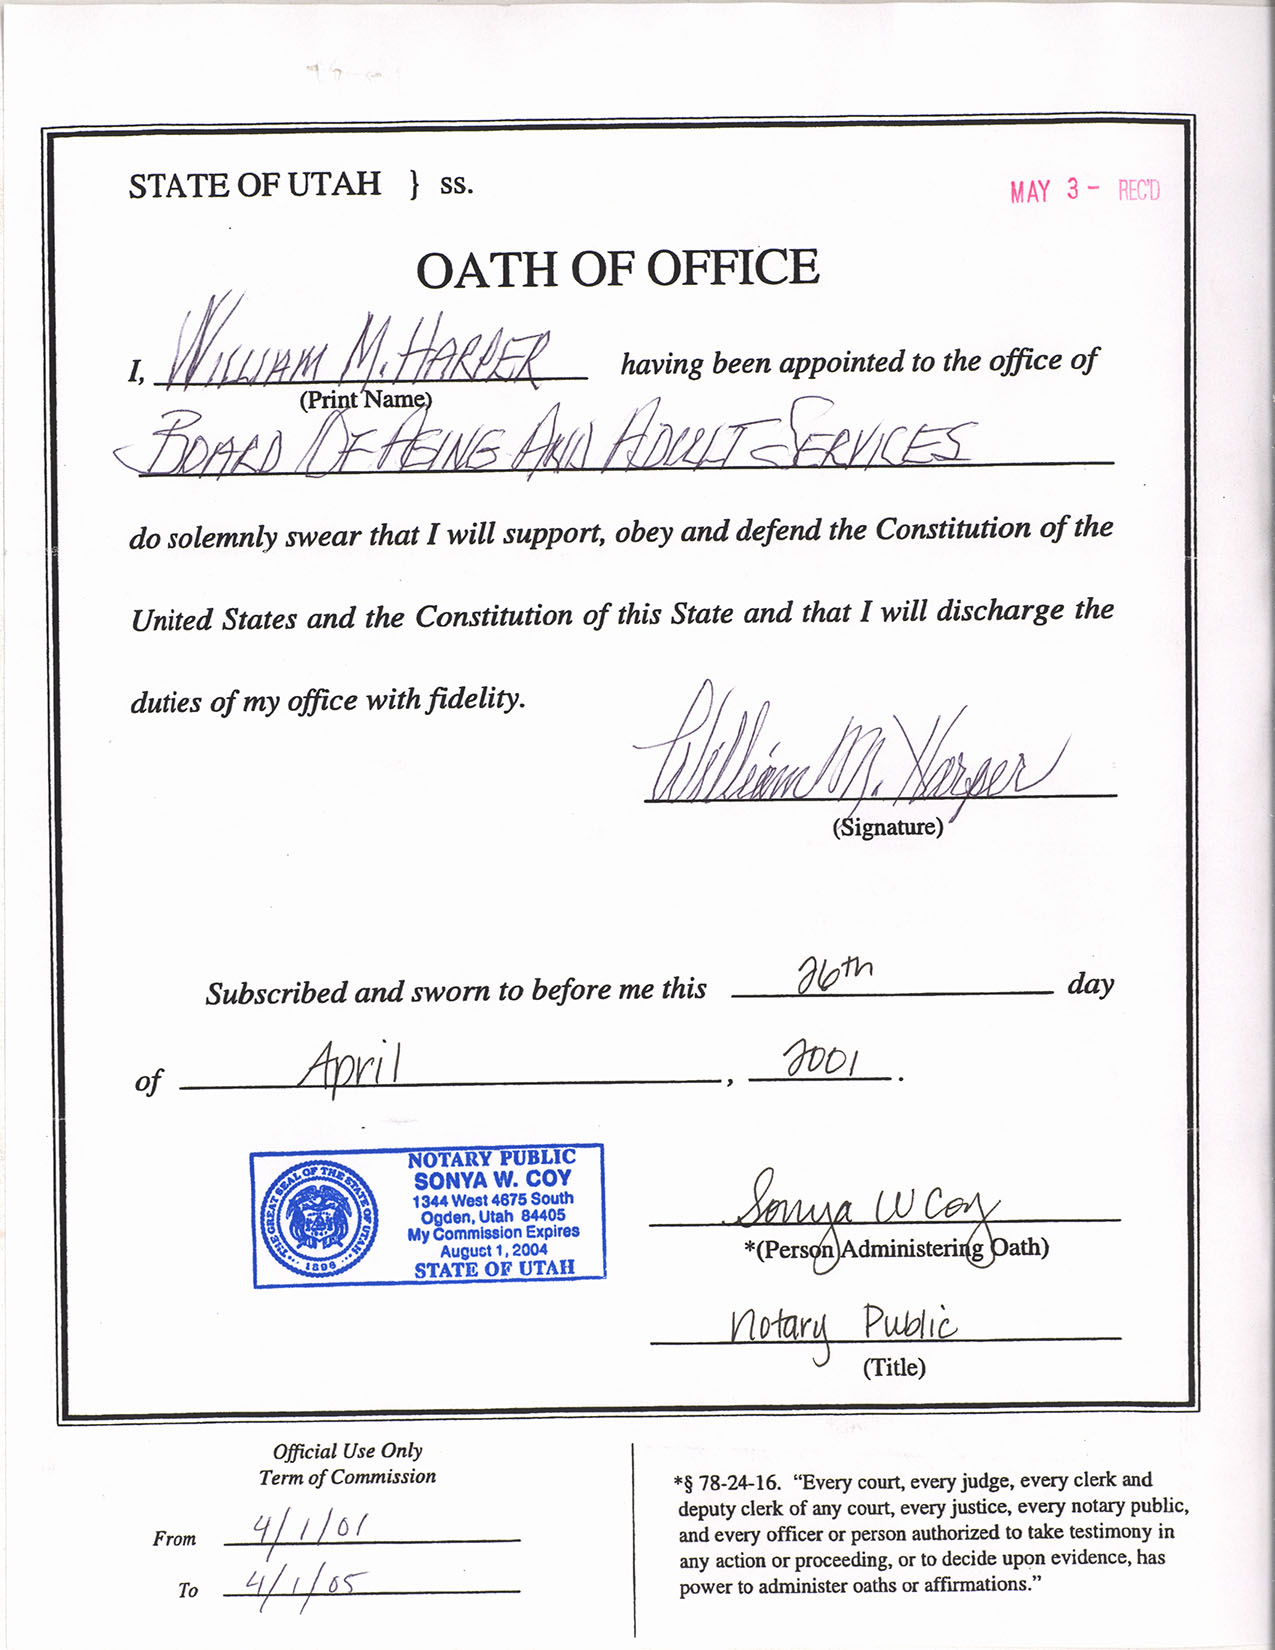 STATE OF UTAH } ss.
MAY 3 - REC'D
OATH OF OFFICE
I, WILLIAM M. HARPER having been appointed to the office of
(Print Name)
BOARD OF AGING AND ADULT SERVICES
do solemnly swear that I will support, obey and defend the Constitution of the
United States and the Constitution of this State and that I will discharge the
duties of my office with fidelity.
William M. Harper
(Signature)
Subscribed and sworn to before me this 26th day
of April, 2001.
NOTARY PUBLIC
SONYA W. COY
1344 West 4675 South
Ogden, Utah 84405
My Commission Expires
August 1, 2004
STATE OF UTAH
THE GREAT SEAL OF THE STATE OF UTAH
1896
Sonya W Coy
*(Person Administering Oath)
Notary Public
(Title)
Official Use Only
Term of Commission
From 4/1/01
To 4/1/05
*§ 78-24-16. “Every court, every judge, every clerk and
deputy clerk of any court, every justice, every notary public,
and every officer or person authorized to take testimony in
any action or proceeding, or to decide upon evidence, has
power to administer oaths or affirmations.”